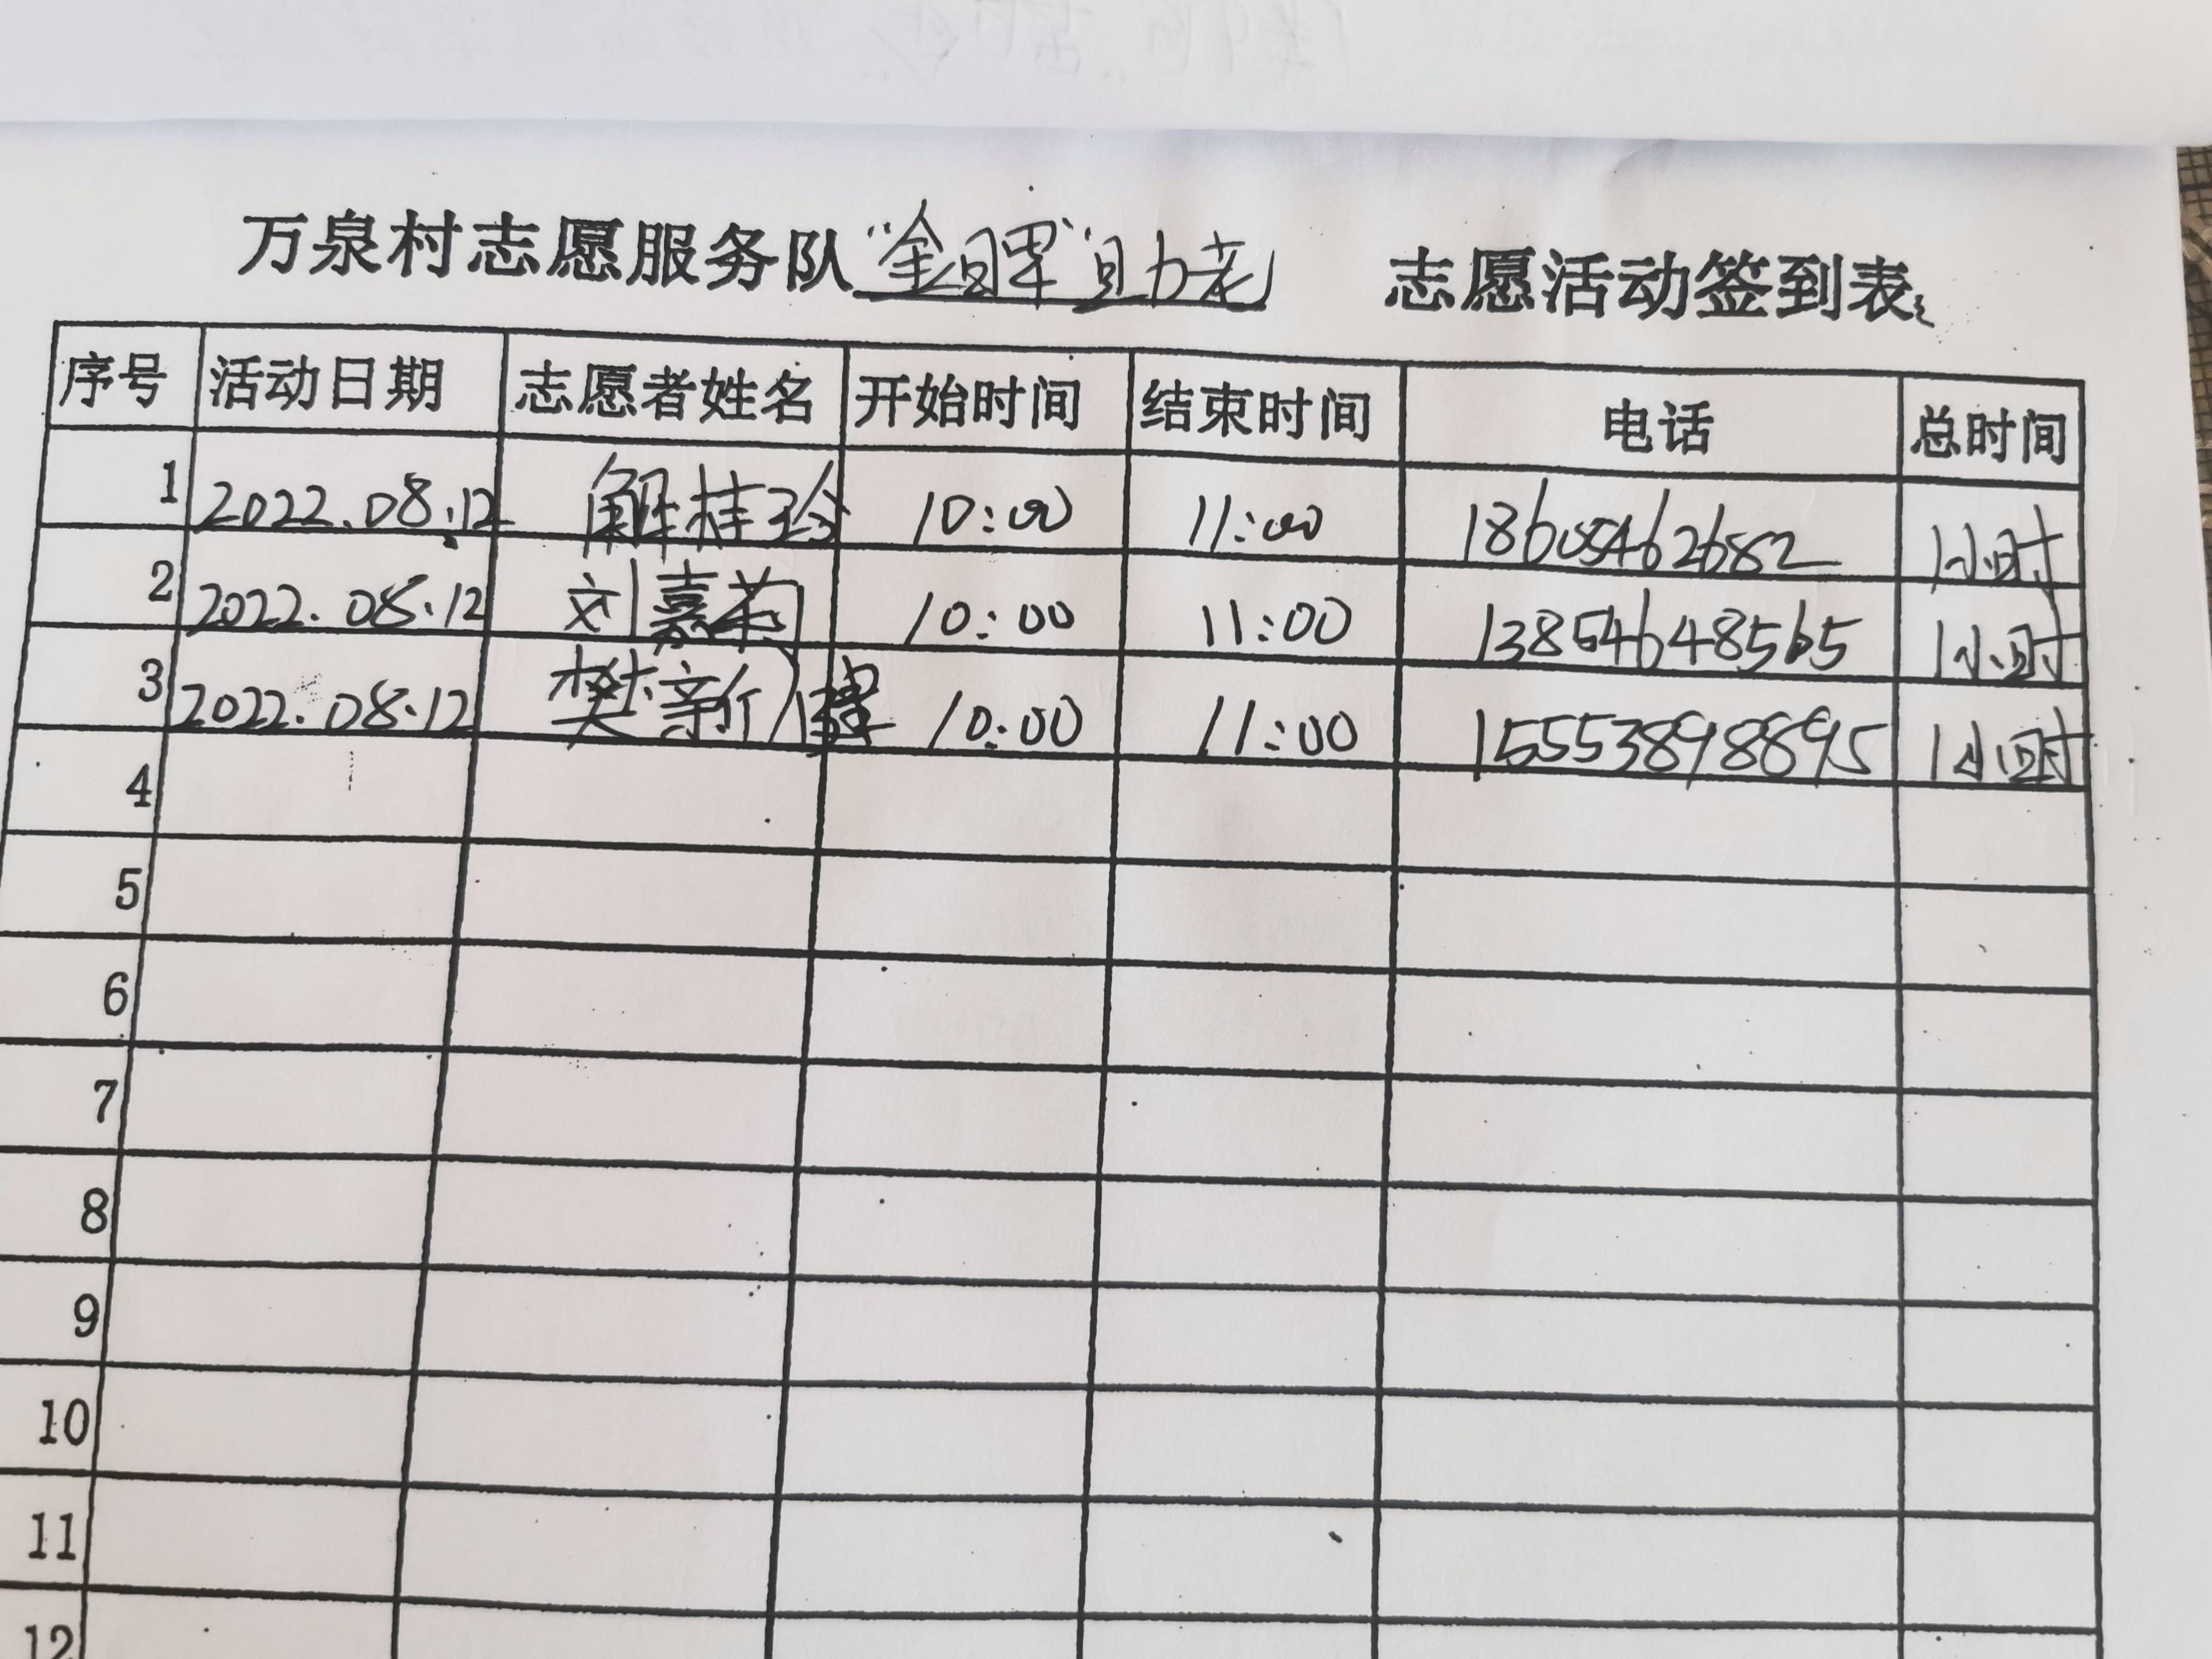 万泉村志愿服务队“金晖”助老 志愿活动签到表
序号 活动日期 志愿者姓名 开始时间 结束时间 电话 总时间
1 2022.08.12 解桂玲 10:00 11:00 18605462682 1小时
2 2022.08.12 刘嘉 10:00 11:00 13854648565 1小时
3 2022.08.12 樊新 10:00 11:00 15553898895 1小时
4
5
6
7
8
9
10
11
12